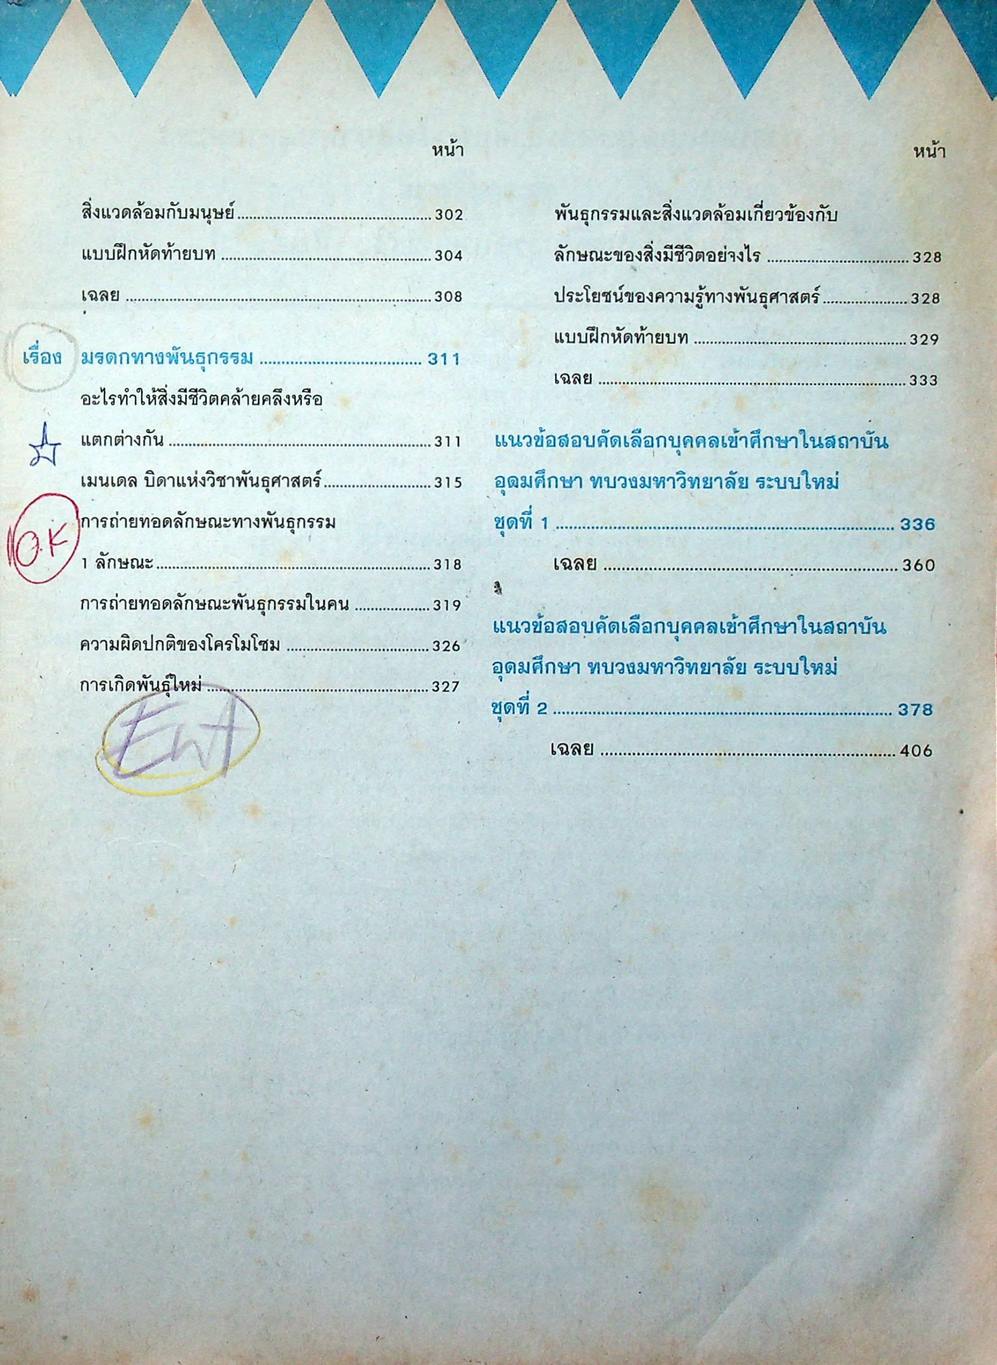 หน้า
สิ่งแวดล้อมกับมนุษย์ 302
แบบฝึกหัดท้ายบท 304
เฉลย 308
เรื่อง มรดกทางพันธุกรรม 311
อะไรทำให้สิ่งมีชีวิตคล้ายคลึงหรือ
แตกต่างกัน 311
เมนเดล บิดาแห่งวิชาพันธุศาสตร์ 315
O.K
การถ่ายทอดลักษณะทางพันธุกรรม
1 ลักษณะ 318
การถ่ายทอดลักษณะพันธุกรรมในคน 319
ความผิดปกติของโครโมโซม 326
การเกิดพันธุ์ใหม่ 327
หน้า
พันธุกรรมและสิ่งแวดล้อมเกี่ยวข้องกับ
ลักษณะของสิ่งมีชีวิตอย่างไร 328
ประโยชน์ของความรู้ทางพันธุศาสตร์ 328
แบบฝึกหัดท้ายบท 329
เฉลย 333
แนวข้อสอบคัดเลือกบุคคลเข้าศึกษาในสถาบัน
อุดมศึกษา ทบวงมหาวิทยาลัย ระบบใหม่
ชุดที่ 1 336
เฉลย 360
แนวข้อสอบคัดเลือกบุคคลเข้าศึกษาในสถาบัน
อุดมศึกษา ทบวงมหาวิทยาลัย ระบบใหม่
ชุดที่ 2 378
เฉลย 406